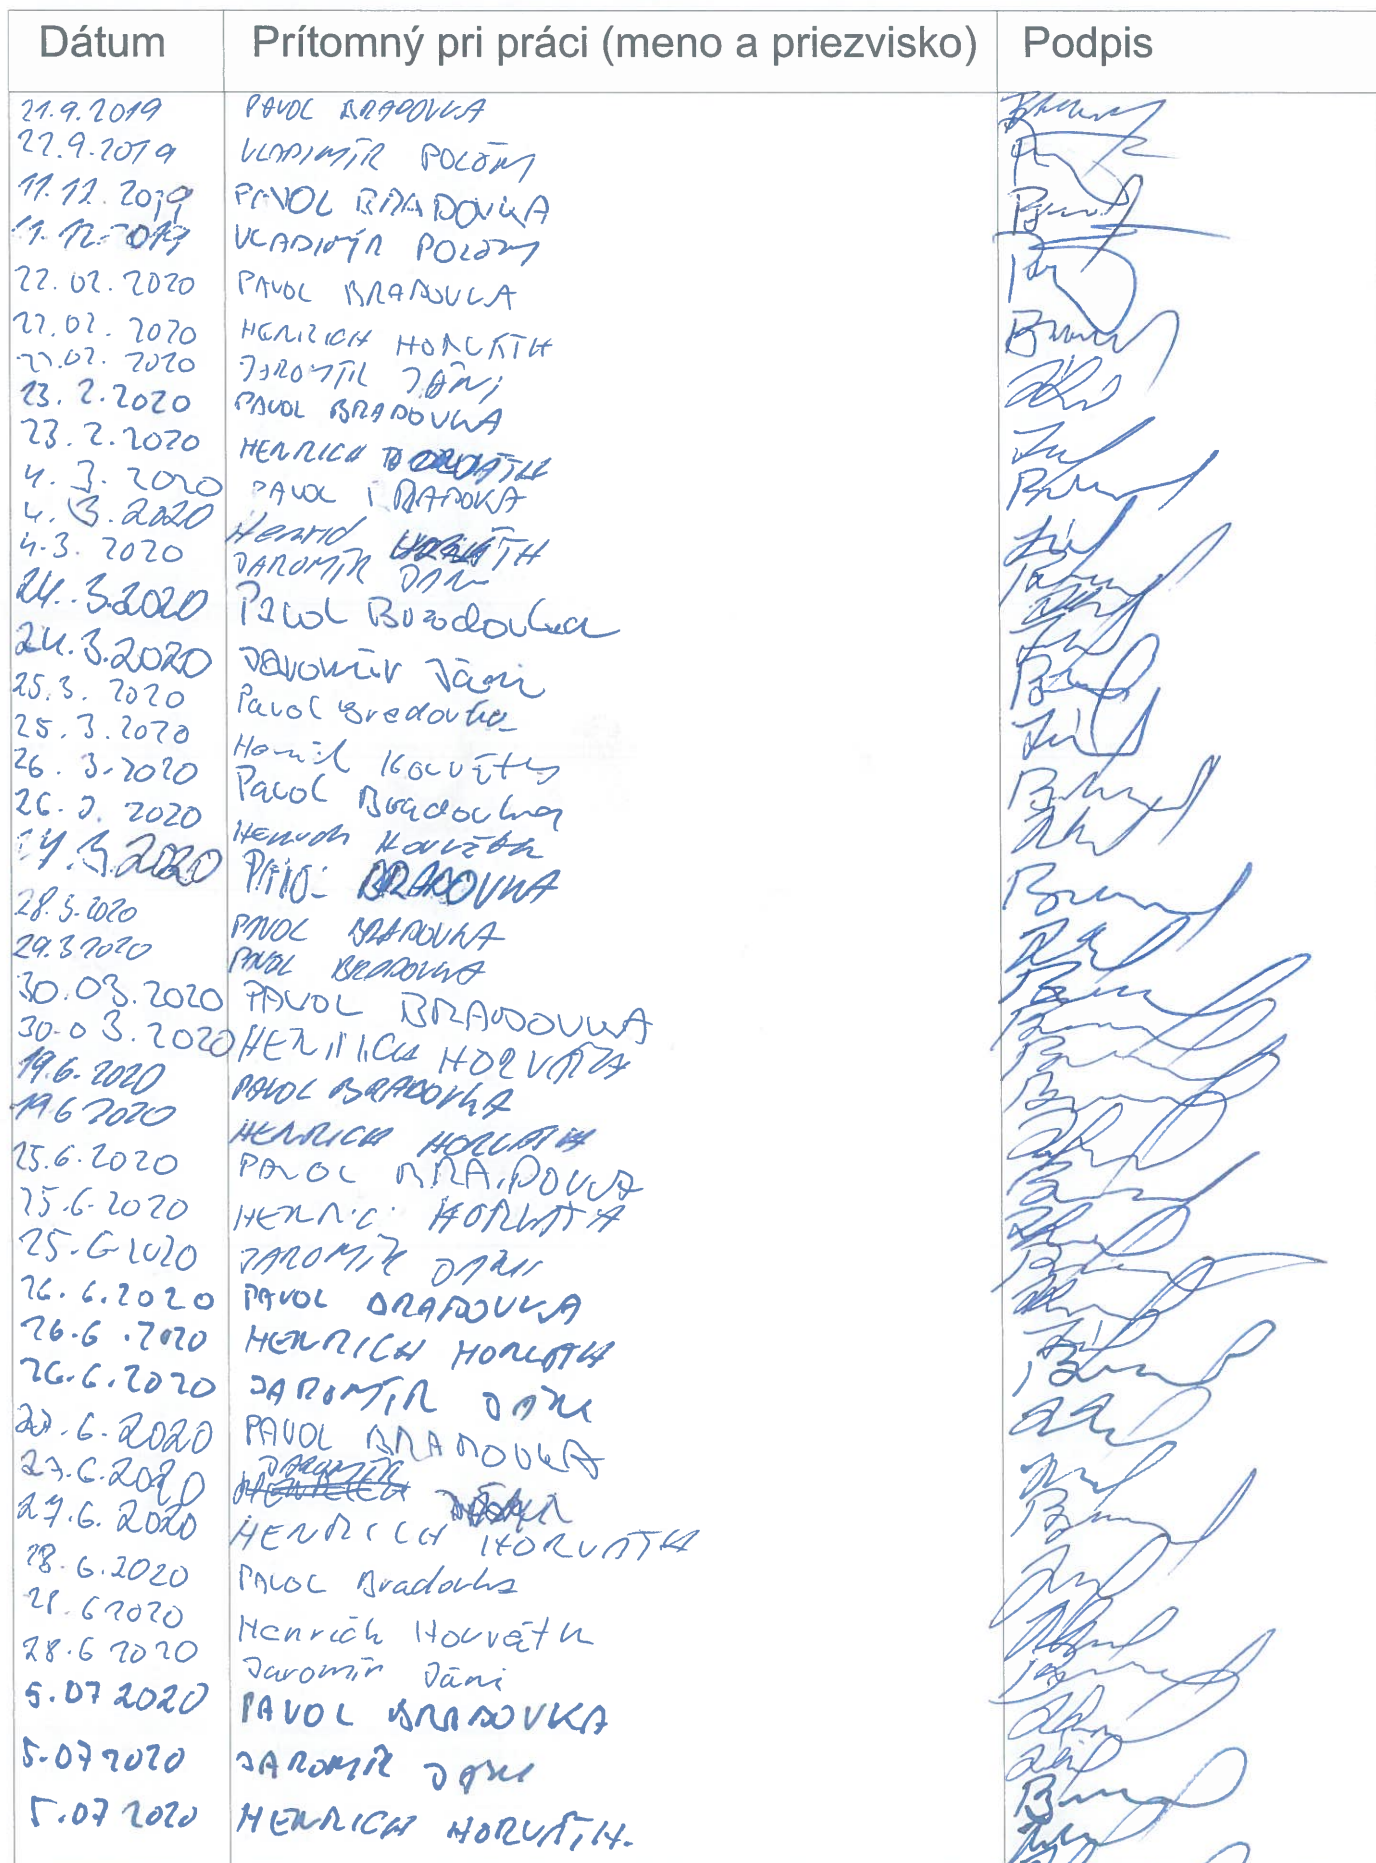 Dátum Prítomný pri práci (meno a priezvisko) Podpis
21.9.2019 PAVOL BRADOVKA
22.9.2019 VLADIMÍR POLÓNY
11.12.2019 PAVOL BRADOVKA
11.12.2019 VLADIMÝR POLÓNY
22.02.2020 PAVOL BRADOVKA
22.02.2020 HENRICH HORVÁTH
22.02.2020 JAROMÍR JÁNI
23.2.2020 PAVOL BRADOVKA
23.2.2020 HENRICH HORVÁTH
4.3.2020 PAVOL BRADOKA
4.3.2020 HORVÁTH
4.3.2020 JAROMÍR JÁNI
24.3.2020 Pavol Bradovka
24.3.2020 Jaromír Jáni
25.3.2020 Pavol Bradovka
25.3.2020 Horváth
26.3.2020 Pavol Bradovka
26.3.2020 Henrich Horváth
3.2020 BRADOVKA
28.3.2020 PAVOL BRADOVKA
29.3.2020 PAVOL BRADOVKA
30.03.2020 PAVOL BRADOVKA
30.03.2020 HENRICH HORVÁTH
19.6.2020 PAVOL BRADOVKA
19.6.2020 HENRICH HORVÁTH
25.6.2020 PAVOL BRADOVKA
25.6.2020 HORVÁTH
25.6.2020 JAROMÍR JÁNI
26.6.2020 PAVOL BRADOVKA
26.6.2020 HENRICH HORVÁTH
26.6.2020 JAROMÍR JÁNI
27.6.2020 PAVOL BRADOVKA
27.6.2020 JAROMÍR
27.6.2020 HENRICH HORVÁTH
28.6.2020 PAVOL Bradovka
28.6 2020 Henrich Horváth
28.6 2020 Jaromír Jáni
5.07 2020 PAVOL BRADOVKA
5.07 2020 JAROMÍR JÁNI
5.07 2020 HENRICH HORVÁTH.